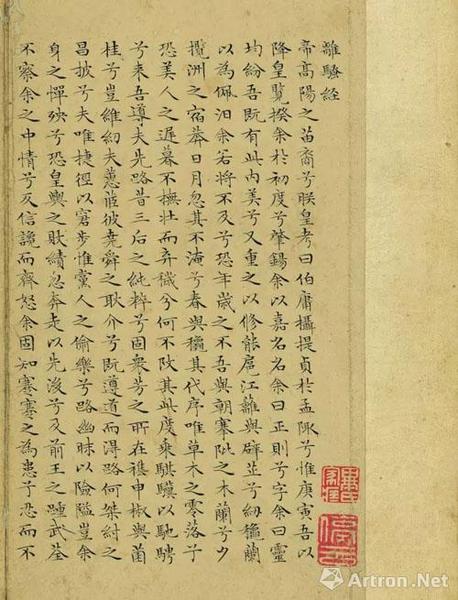 離騷經
帝高陽之苗裔兮朕皇考曰伯庸攝提貞於孟陬兮惟庚寅吾以
降皇覽揆余於初度兮肇錫余以嘉名名余曰正則兮字余曰靈
均紛吾既有此內美兮又重之以修能扈江蘺與辟芷兮紉穐蘭
以為佩汩余若將不及兮恐年歲之不吾與朝搴阰之木蘭兮夕
攬洲之宿莽日月忽其不淹兮春與穐其代序唯草木之零落兮
恐美人之遲暮不撫壯而弃穢兮何不改其此度乘騏驥以馳騁
兮来吾導夫先路昔三后之純粹兮固衆芳之所在襍申椒與菌
桂兮豈維紉夫蕙茝彼堯舜之耿介兮既遵道而得路何桀紂之
昌披兮夫唯捷徑以窘步惟黨人之偷樂兮路幽昧以險隘豈余
身之憚殃兮恐皇輿之敗績忽奔走以先後兮及前王之踵武荃
不察余之中情兮反信讒而齌怒余固知謇謇之為患兮忍而不
Artron.Net